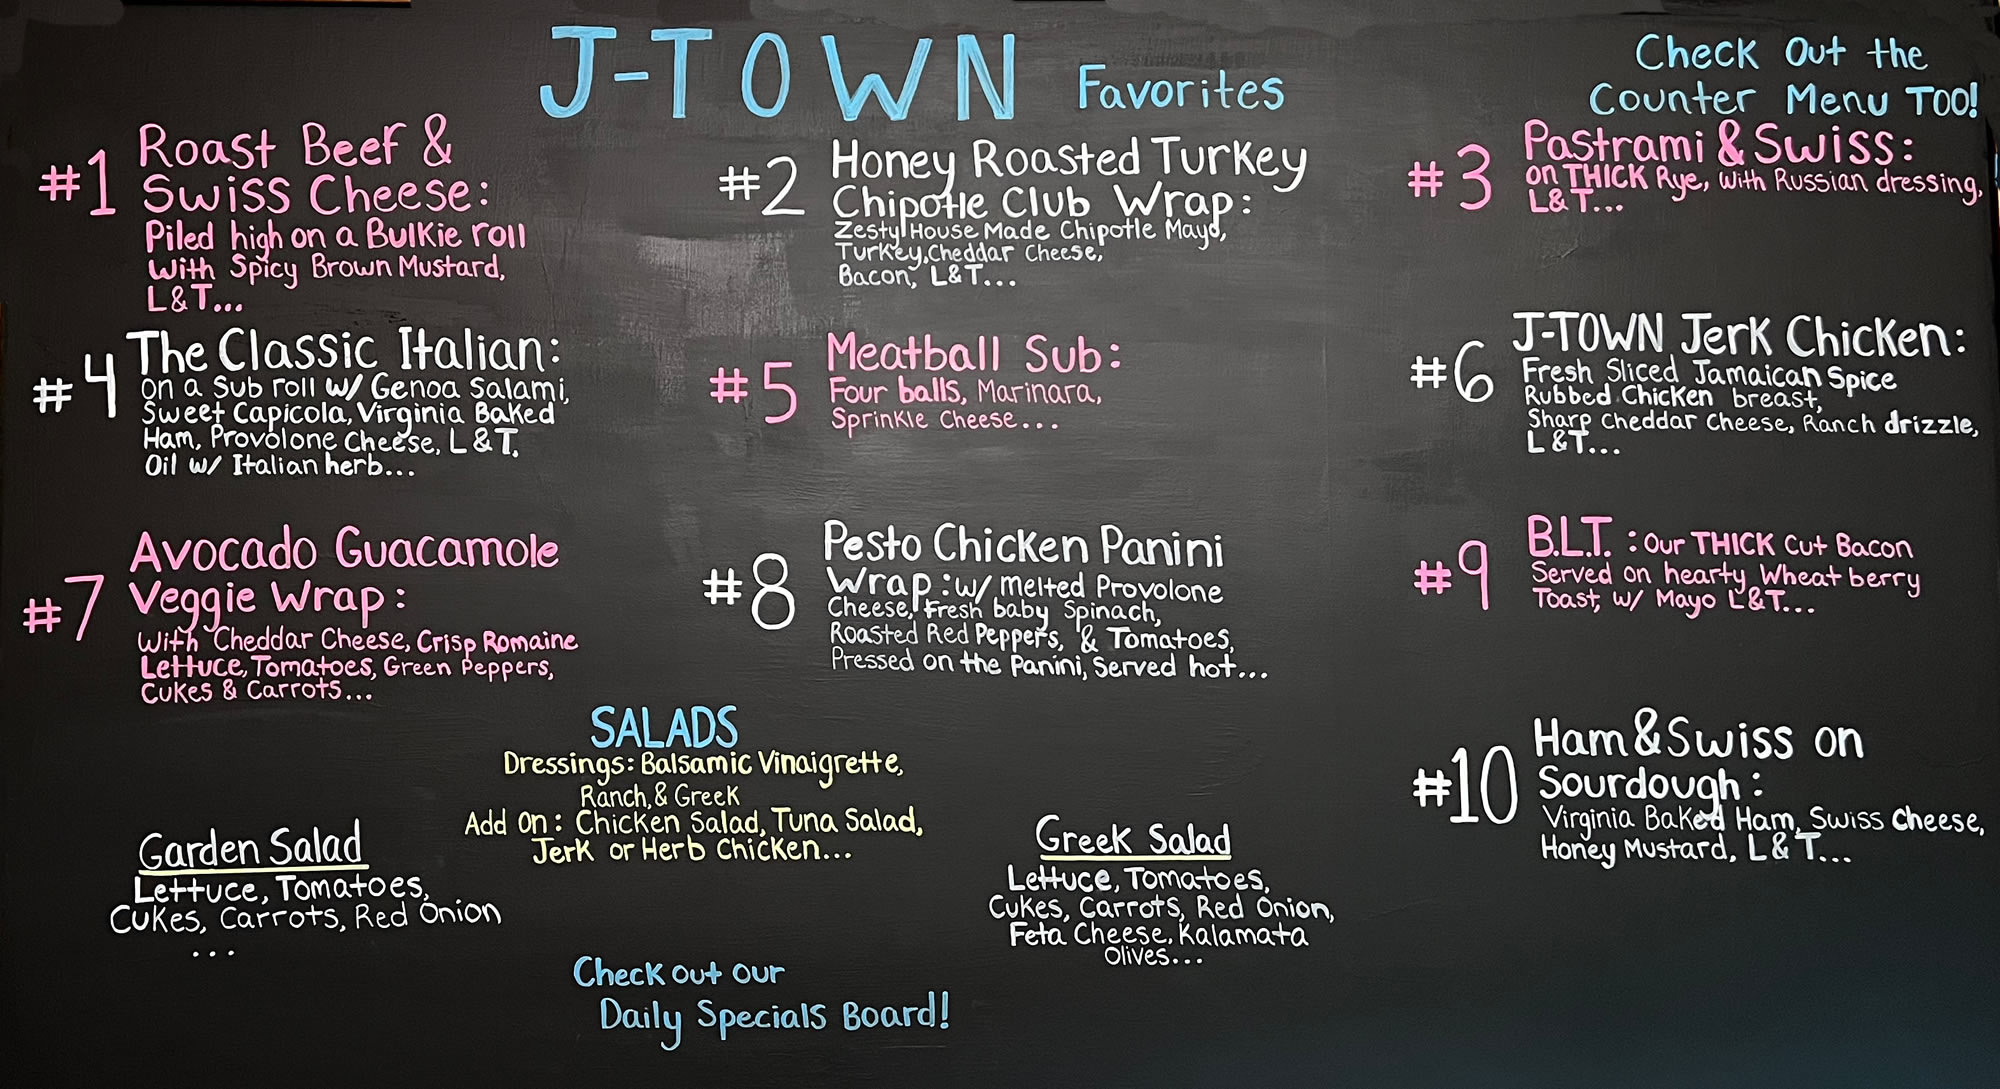 J-TOWN Favorites
Check Out the
Counter Menu TOO!
#1 Roast Beef &
Swiss Cheese:
Piled high on a Bulkie roll
with Spicy Brown Mustard,
L&T...
#2 Honey Roasted Turkey
Chipotle Club Wrap:
Zesty House Made Chipotle Mayo,
Turkey, Cheddar Cheese,
Bacon, L&T...
#3 Pastrami & Swiss:
on THICK Rye, with Russian dressing,
L&T...
#4 The Classic Italian:
on a Sub roll w/ Genoa Salami,
Sweet Capicola, Virginia Baked
Ham, Provolone Cheese, L&T,
Oil w/ Italian herb...
#5 Meatball Sub:
Four balls, Marinara,
Sprinkle Cheese...
#6 J-TOWN Jerk Chicken:
Fresh Sliced Jamaican Spice
Rubbed Chicken breast,
Sharp Cheddar Cheese, Ranch drizzle,
L&T...
#7 Avocado Guacamole
Veggie Wrap:
With Cheddar Cheese, Crisp Romaine
Lettuce, Tomatoes, Green Peppers,
Cukes & Carrots...
#8 Pesto Chicken Panini
Wrap: w/ melted Provolone
Cheese, Fresh baby Spinach,
Roasted Red Peppers, & Tomatoes,
Pressed on the Panini, Served hot...
#9 B.L.T.: Our THICK Cut Bacon
Served on hearty Wheat berry
Toast, w/ Mayo L&T...
#10 Ham & Swiss on
Sourdough:
Virginia Baked Ham, Swiss Cheese,
Honey Mustard, L&T...
SALADS
Dressings: Balsamic Vinaigrette,
Ranch, & Greek
Add On: Chicken Salad, Tuna Salad,
Jerk or Herb Chicken...
Garden Salad
Lettuce, Tomatoes,
Cukes, Carrots, Red Onion
...
Greek Salad
Lettuce, Tomatoes,
Cukes, Carrots, Red Onion,
Feta Cheese, Kalamata
Olives...
Check out our
Daily Specials Board!